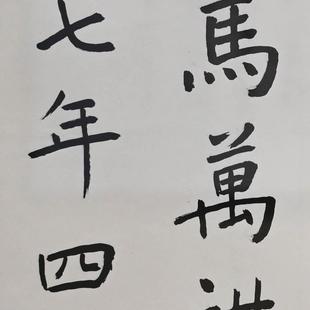 馬萬
七年四